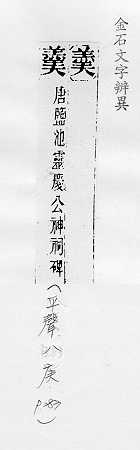 金石文字辨異
羹
羹
唐鹽池靈慶公神祠碑
(平聲八庚